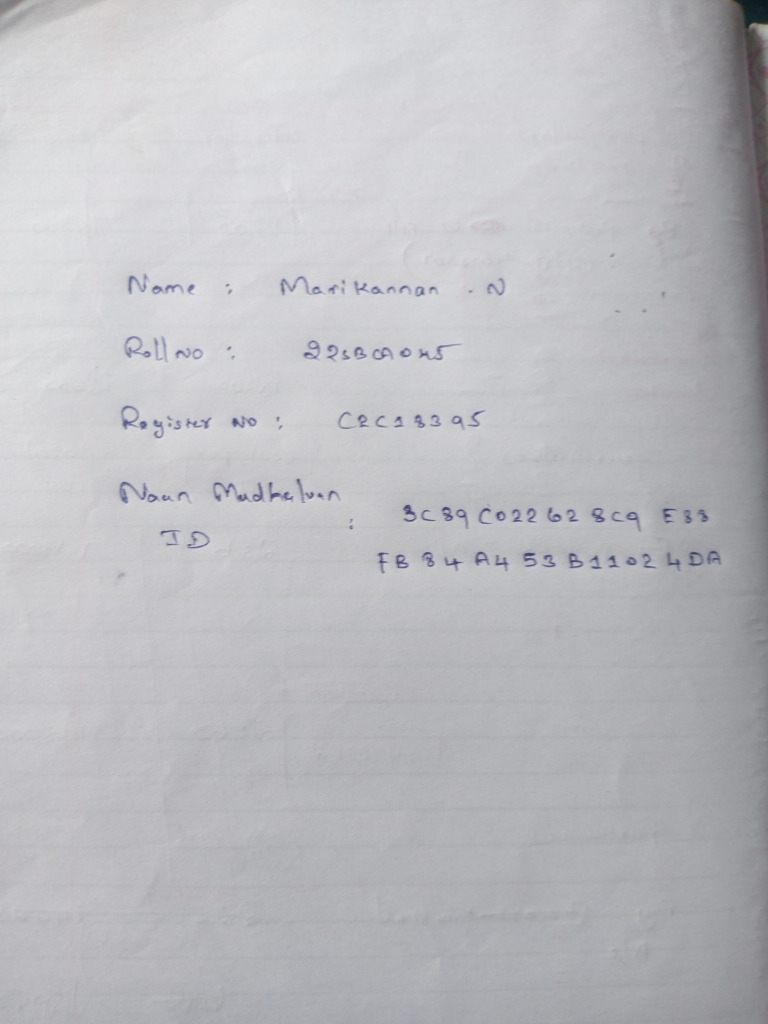 Name : Marikannan . N
Roll no : 22SBCA045
Register no : C2C18395
Naan Mudhalvan
ID : 3C89C022628C9E33
FB84A453B11024DA